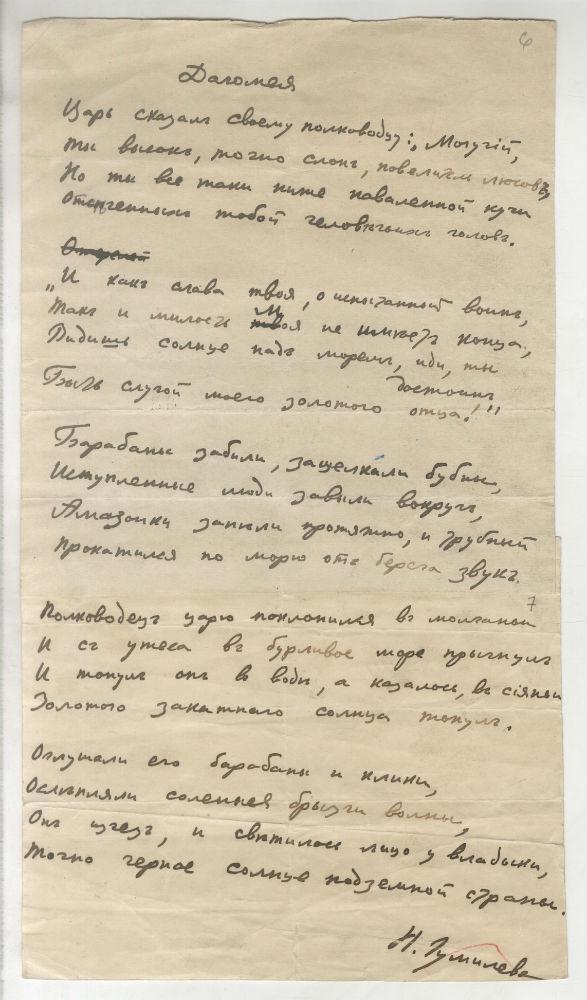 6
Дагомея
Царь сказалъ своему полководцу: „Могучій,
Ты высокъ, точно слонъ, повелитель лѣсовъ,
Но ты все таки ниже наваленной кучи
Отсѣченныхъ тобой человѣчьихъ головъ.
„И какъ слава твоя, о испытанный воинъ,
Такъ и милость моя не имѣетъ конца;
Видишь солнце надъ моремъ, иди, ты
достоинъ
Быть слугой моего золотого отца!“
Барабаны забили, защелкали бубны,
Иступленные люди завыли вокругъ,
Амазонки запѣли протяжно, и трубный
Прокатился по морю отъ берега звукъ.
7
Полководецъ царю поклонился въ молчаньи
И съ утеса въ бурливое море прыгнулъ
И тонулъ онъ въ водѣ, а казалось, въ сіяньи
Золотого закатнаго солнца тонулъ.
Оглушали его барабаны и клики,
Ослѣпляли соленыя брызги волны,
Онъ исчезъ, и свѣтилось лицо у владыки,
Точно черное солнце подземной страны.
Н. Гумилевъ